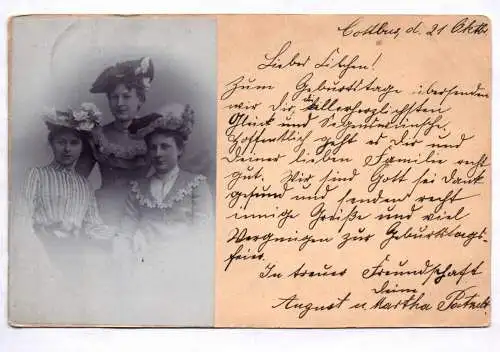 Cottbus, d. 21 Oktb.
Lieber Litchen!
Zum Geburtstage übersenden
wir Dir die Allerherzlichsten
Glück und Segenswünsche,
Hoffentlich geht es Dir und
Deiner lieben Familie recht
gut. Wir sind Gott sei dank
gesund und senden recht
innige Grüße und viel
Vergnügen zur Geburtstags-
feier.
In treuer Freundschaft
deine
August u. Martha